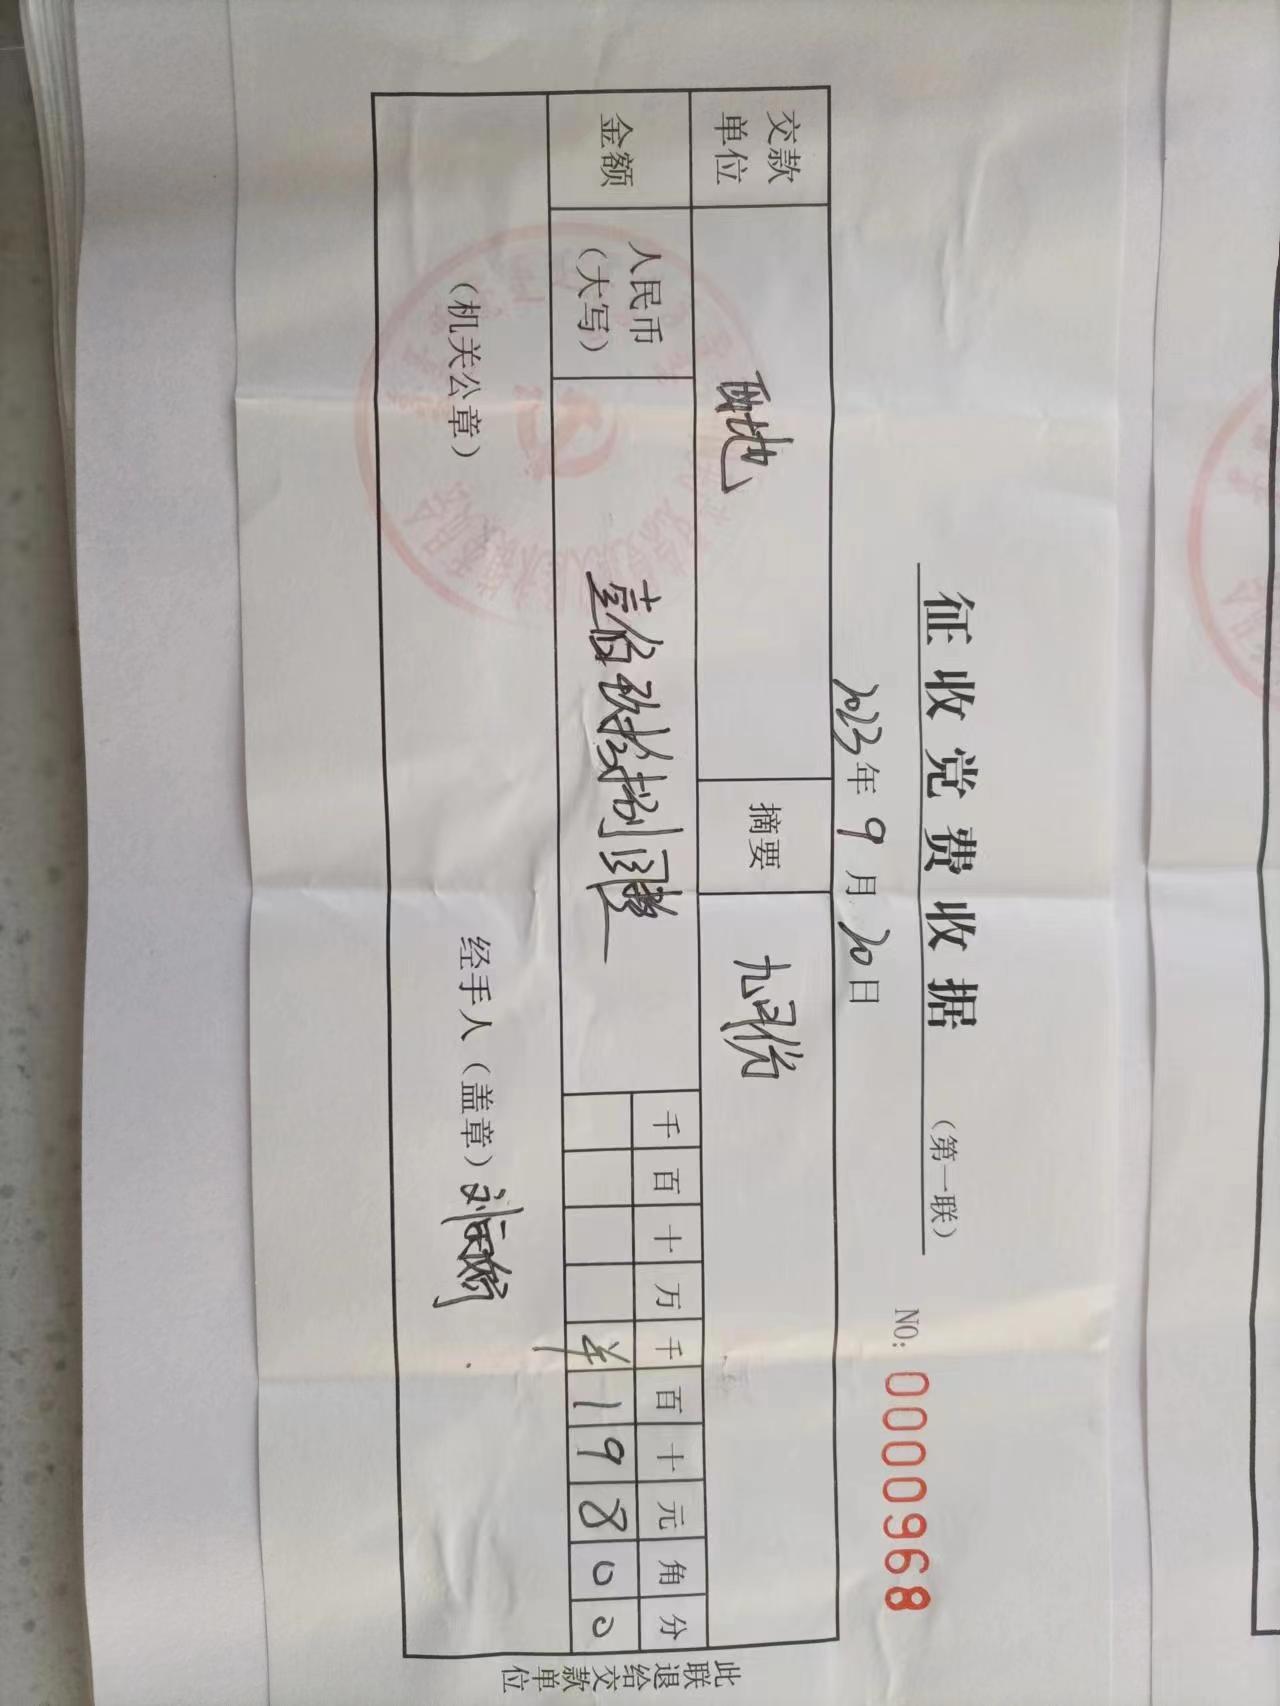 征收党费收据 （第一联）
NO: 0000968
2023年9月20日
交款单位 摘要 九月份
金额 人民币（大写） 壹佰玖拾捌圆整
千 百 十 万 千 百 十 元 角 分
¥ 1 9 8 0 0
（机关公章） 经手人（盖章）
此联退给交款单位